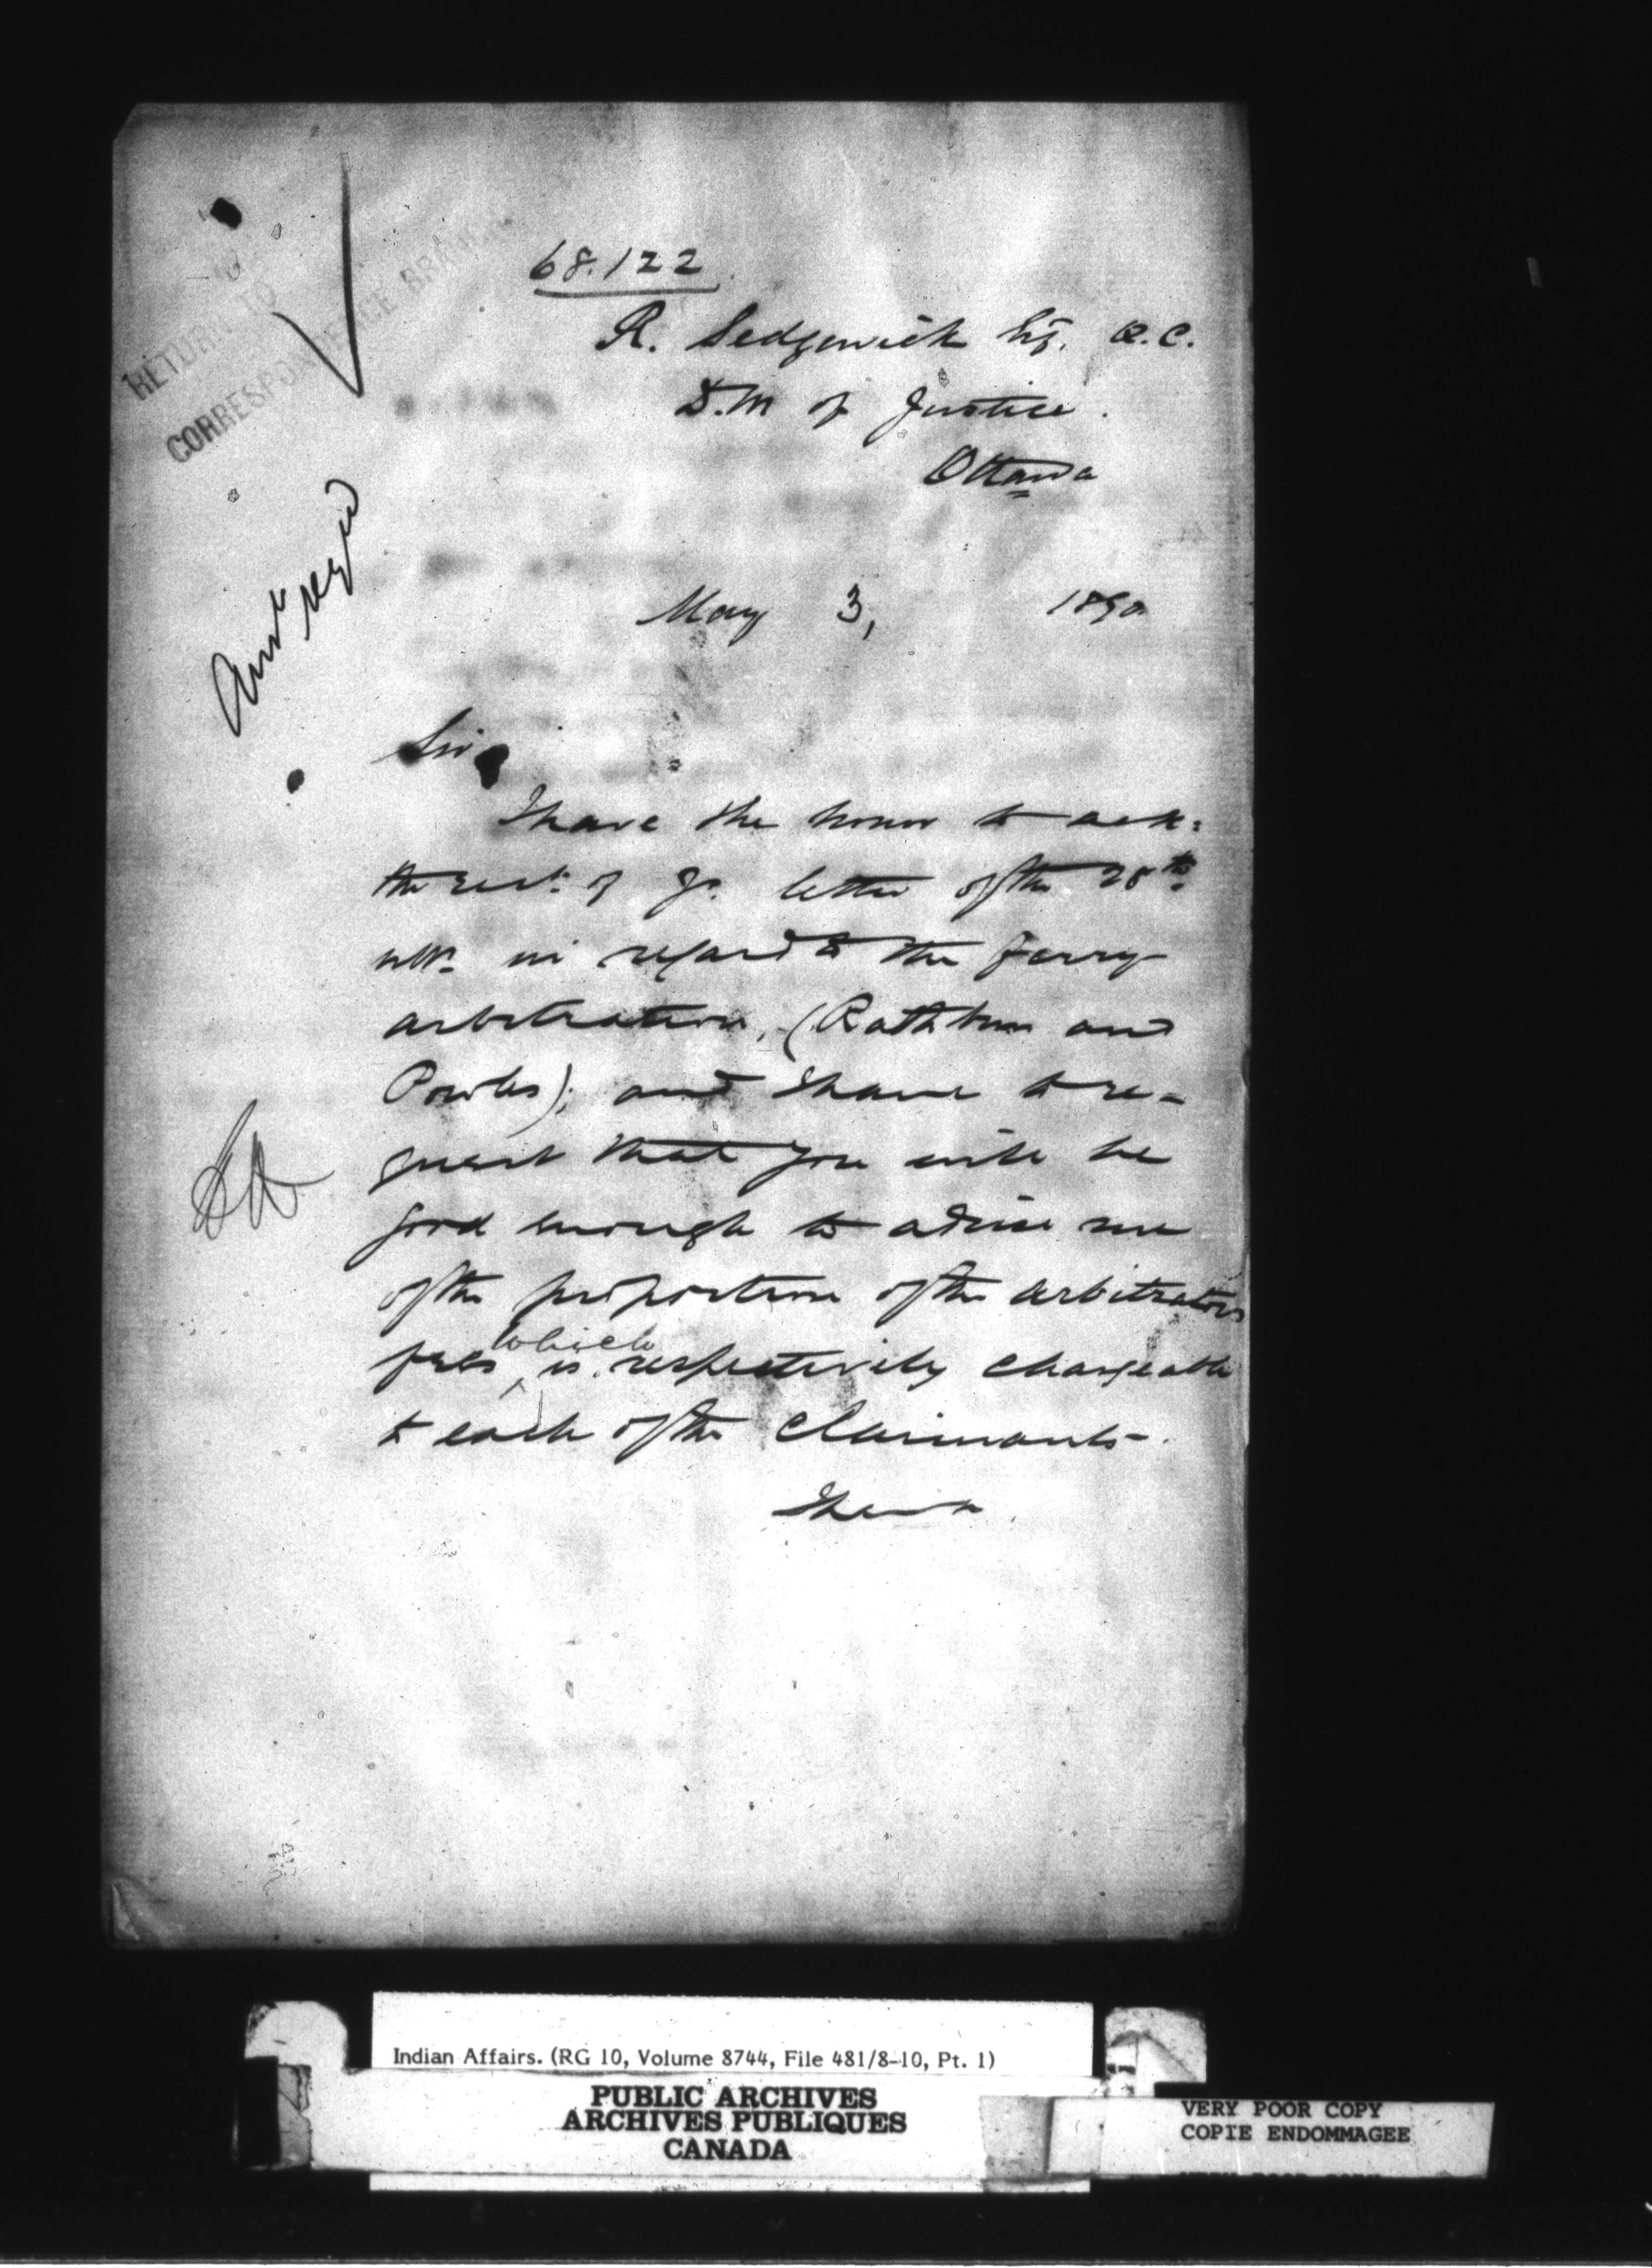 RETURN TO
CORRESPONDENCE BRANCH
68.122
R. Sedgewick Esq. Q.C.
D.M of Justice.
Ottawa
May 3, 1890
Sir
I have the honor to ack:
the rect: of yr. letter of the 28th
ult. in regard to the Ferry
arbitration, (Rathbun and
Powles); and I have to re-
quest that you will be
good enough to advise me
of the proportion of the arbitrators
fees which is respectively chargeable
to each of the Claimants.
I have
Indian Affairs. (RG 10, Volume 8744, File 481/8-10, Pt. 1)
PUBLIC ARCHIVES
ARCHIVES PUBLIQUES
CANADA
VERY POOR COPY
COPIE ENDOMMAGEE